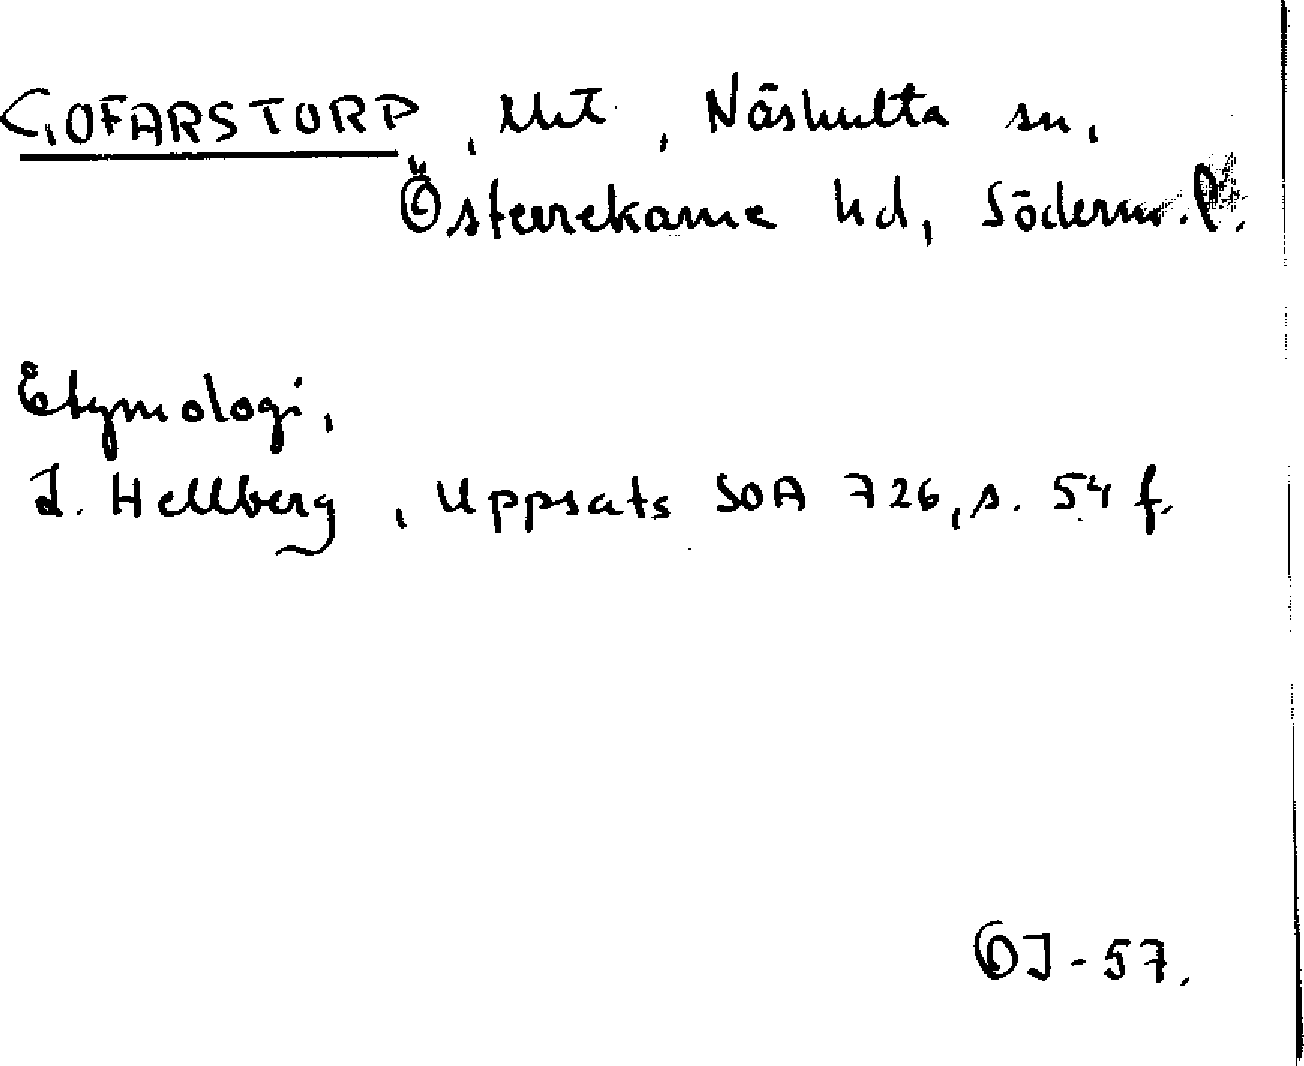 GOFARSTORP, Näshulta sn,
Österrekarne hd, Söderm.
Etymologi,
L. Hellberg, Uppsats SOA 726, s. 54 f.
OJ-57.